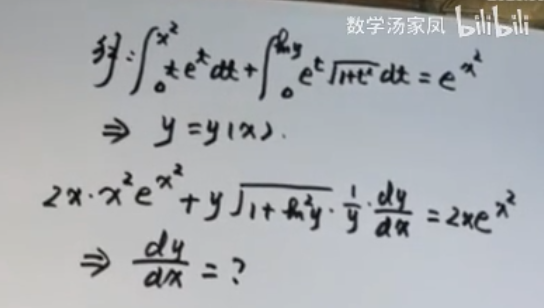 数学汤家凤 bilibili
例: ∫₀^{x²} te^t dt + ∫₀^{ln y} e^t √(1+t²) dt = e^{x²}
⇒ y = y(x).
2x·x²e^{x²} + y√(1+ln²y)·1/y·dy/dx = 2xe^{x²}
⇒ dy/dx = ?